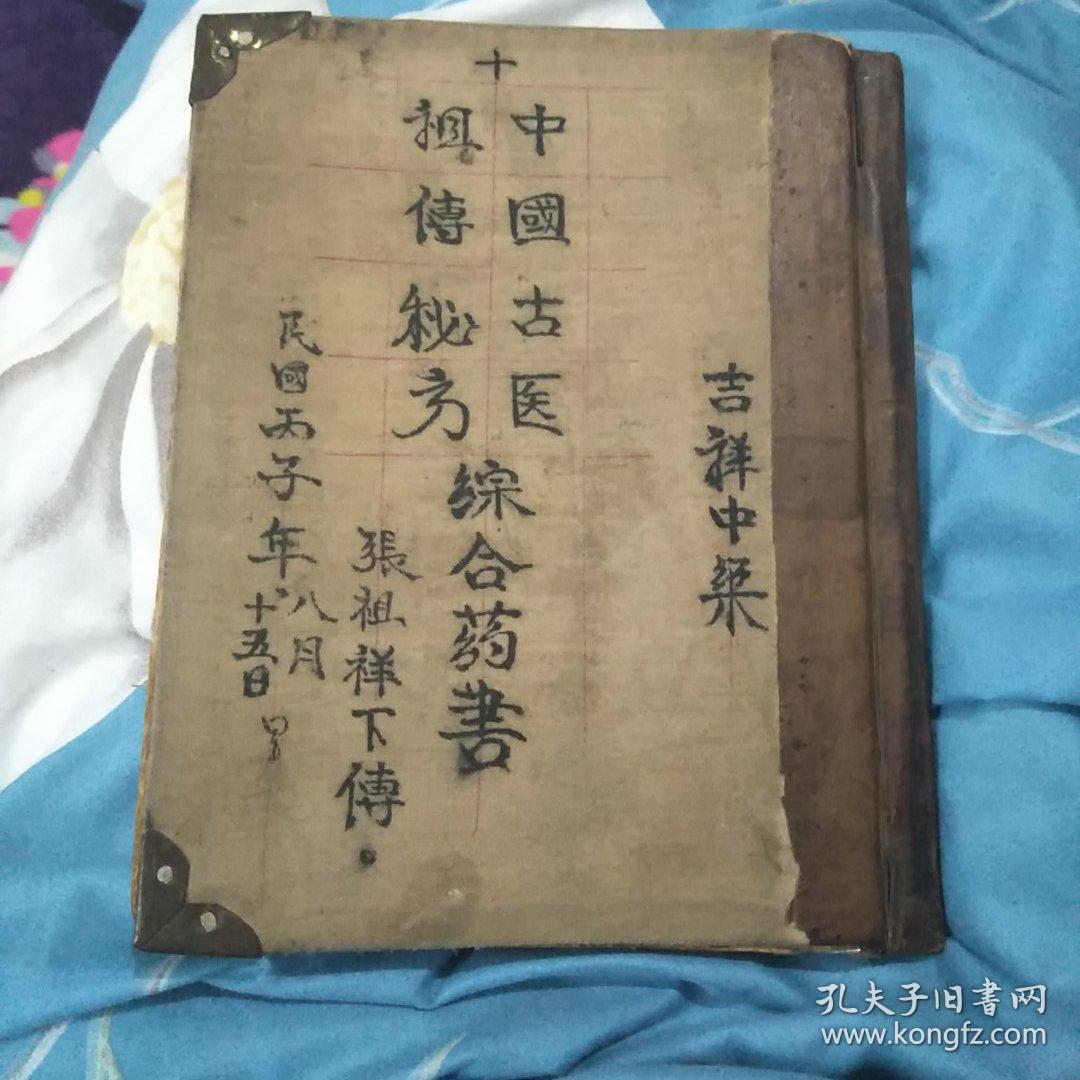 十
吉祥中
中國古医
祖傳秘方
综合药書
張祖祥下傳。
民國丙子年
八月
十五日
孔夫子旧書网
www.kongfz.com